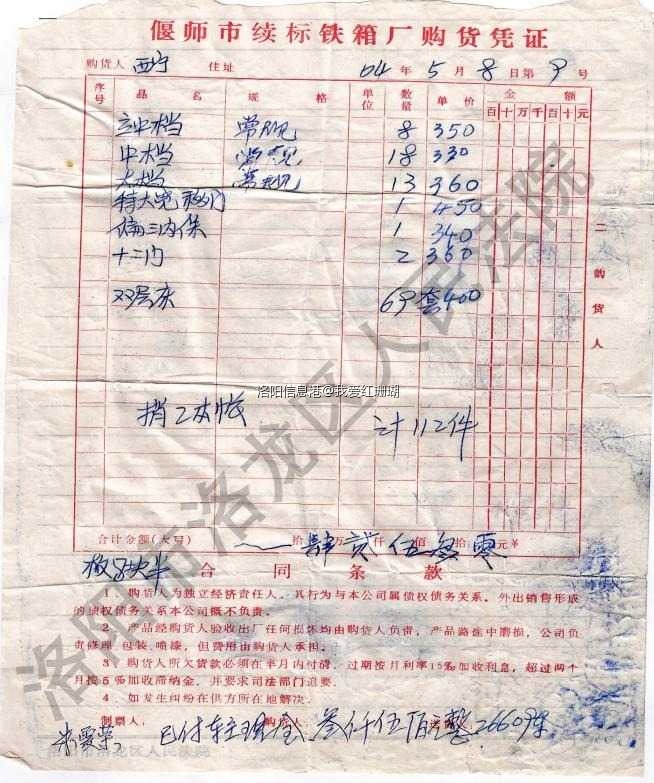 偃师市续标铁箱厂购货凭证
购货人 西宁 住址 04年5月8日第 号
序号 品名 规格 单位 数量 单价 金额
百十万千百十元
立中档 常规 8 350
中档 常规 18 330
大档 常规 13 360
特大 移门 1 450
偏三内保 1 340
十二门 2 360
双层床 69套 400
二购货人
洛阳信息港@我爱红珊瑚
捎2本账 计112件
合计金额(大写) 拾万仟佰拾元¥ 肆贰伍 零
合同条款
1、购货人为独立经济责任人。其行为与本公司属债权债务关系。外出销售形成
的债权债务关系本公司概不负责。
2、产品经购货人验收出厂任何损坏均由购货人负责,产品路途中磨损,公司负
责修理 包装、喷漆,但费用由购货人承担。
3、购货人所欠货款必须在半月内付清,过期按月利率15‰加收利息,超过两个
月按5‰加收滞纳金,并要求司法部门追要。
4、如发生纠纷在供方所在地解决。
制票人: 购货人
已付车 现金 叁仟伍佰元整 26609车
洛阳市洛龙区人民法院
洛阳市洛龙区人民法院